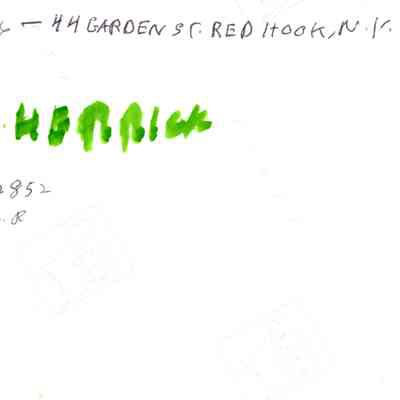 — 44 GARDEN ST. RED HOOK, N.Y.
HERRICK
2852
. R